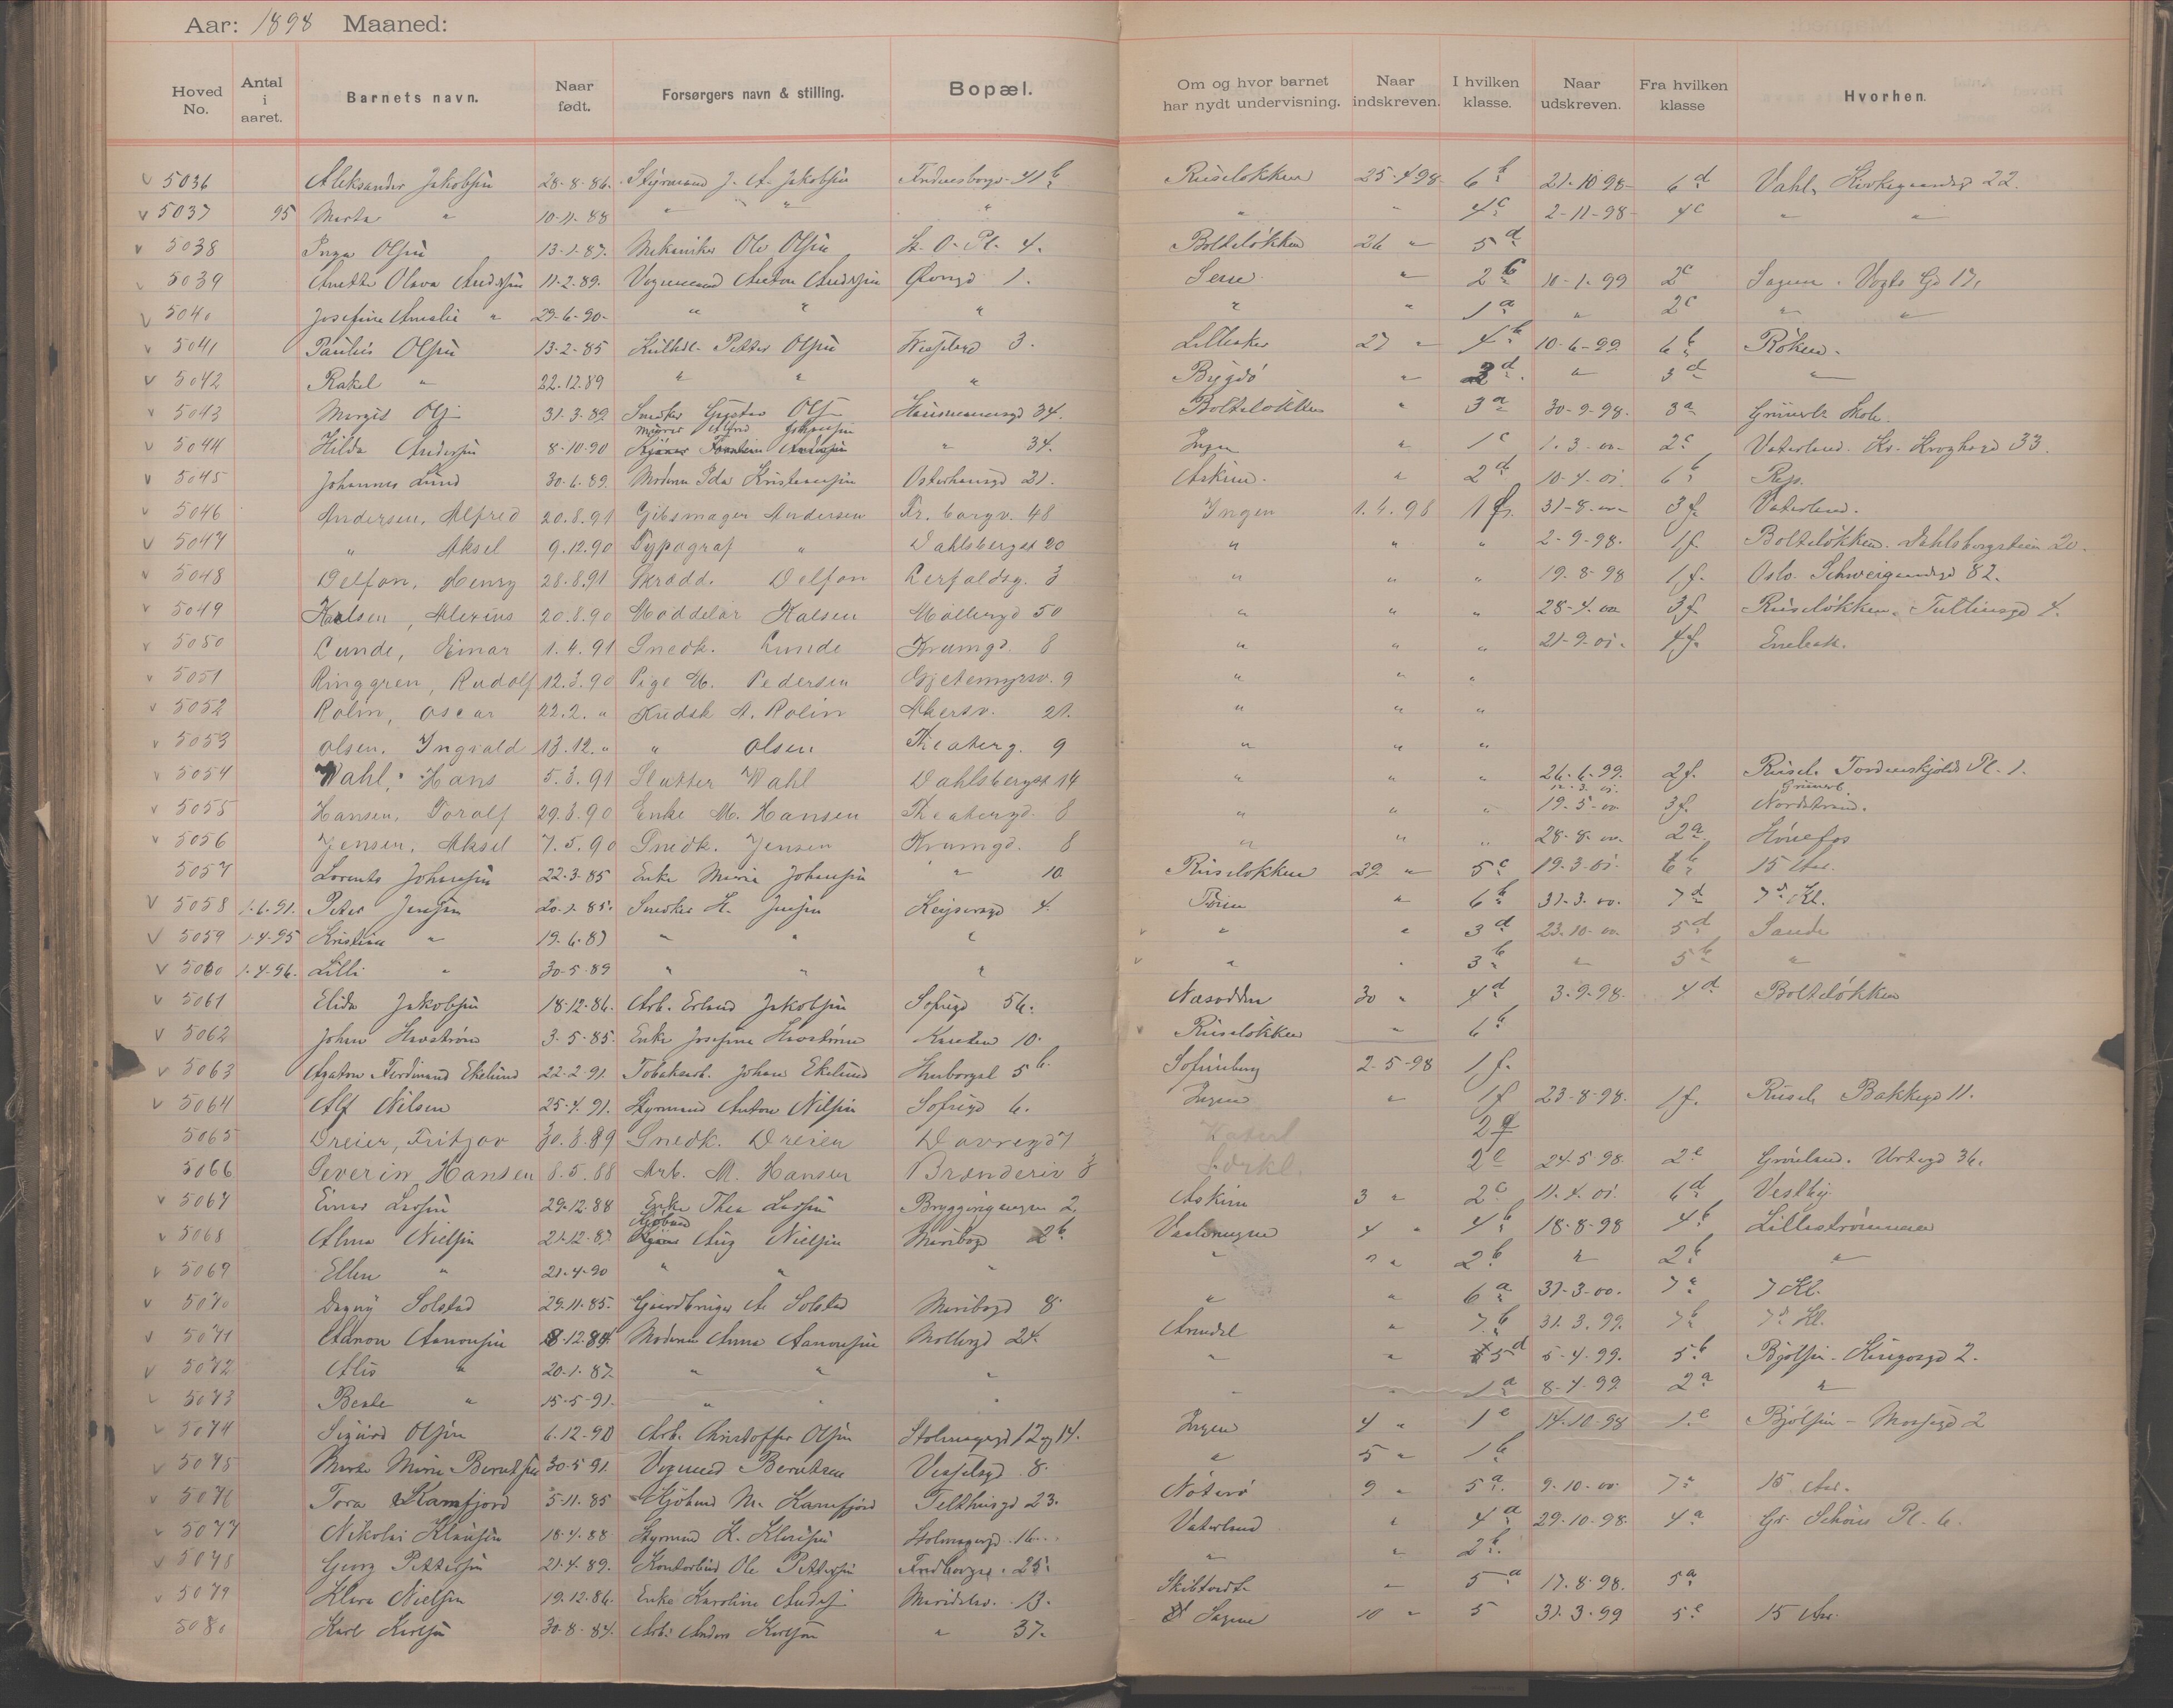 Aar: 1898 Maaned:
Hoved No. Antal i aaret. Barnets navn. Naar født. Forsørgers navn & stilling. Bopæl. Om og hvor barnet har nydt undervisning. Naar indskreven. I hvilken klasse. Naar udskreven. Fra hvilken klasse Hvorhen.
v 5036 Aleksander Jakobsen 28-8-86. Styrmand J. A. Jakobsen 41 b Ruseløkken 25-4-98 6 b 21-10-98- 6 d Vahl. 22.
v 5037 95 Marta " 10-11-88 " " " " " 4 c 2-11-98- 4 c " "
v 5038 Inga Olsen 13-1-87. Mekaniker Ole Olsen St. O. Pl. 4. Bolteløkken 26 " 5 d
5039 Anette Olava Andersen 11-2-89. Vognmand Anton Andersen 1. " 2 10-1-99 2 c Sagene. Vogts Gd 17,
v 5040 Josefine Amalie " 29-6-90- " " " " " 1 a " 2 c " "
v 5041 Paulus Olsen 13-2-85 Petter Olsen 3. Lilleaker 27 " 4 b 10-6-99 6 b Røken.
v 5042 Rakel " 22.12.89 " " " Bygdø " d. " 3 d "
v 5043 Margit Ols 31-3-89 Snedker Gustav Ols Hausmannsgd 34. Bolteløkken " 3 a 30-9-98. 3 a Grünerl. Skole.
v 5044 Hilda Andersen 8-10-90 Murer Alfred Johansen " 34. Ingen " 1 c 1-3-00- 2 c Vaterland. Kr. Kroghsgd 33.
v 5045 Johannes Lund 30-6-89. Modern Ida Kristiansen Osterhausgd 21. Askim. " 2 d 10-4-01 6 b Rep.
v 5046 Andersen, Alfred 20.8.91 Gibsmager Andersen Fr. borgv. 48 Ingen 1.4.98 1 f. 31-8-00- 3 f Vaterland.
v 5047 " Aksel 9.12.90 Typograf " Dahlsbergst 20 " " " 2-9-98. 1 f. Bolteløkken. Dahlsbergstien 20.
v 5048 Delfon, Henry 28.8.91 Skrædd. Delfon Lerfaldsg. 3 " " " 19-8-98 1 f. Oslo. Schweigaardsgd 82.
v 5049 Kalsen, Alexius 20.8.90 Moddelør Kalsen Møllergd 50 " " " 28-4-00 3 f Ruseløkken. Tullinsgd 4.
v 5050 Lunde, Einar 1.4.91 Snedk. Lunde Krumgd. 8 " " " 21-9-01. 4 f. Enebak.
v 5051 Ringgren, Rudolf 12.3.90 Pige M. Pedersen Gjetemyrsv. 9 " " "
v 5052 Rolin, Oscar 22.2. " Kudsk A. Rolin Akersv. 21. " " "
v 5053 Olsen, Ingvald 13.12. " " Olsen Theaterg. 9 " " "
v 5054 Wahl, Hans 5.3.91 Slatter Wahl Dahlsbergst 14 " " " 26-6-99. 2 f. Rusel. Tordenskjolds Pl. 1.
12-3-01. Grünerl.
v 5055 Hansen, Torolf 29.3.90 Enke M. Hansen Theatergd. 8 " " " 19-5-00 3 f. Nordstrand.
v 5056 Jensen, Aksel 7.5.90 Snedk. Jensen Krumgd. 8 " " " 28-8-00. 2 a. Hönefos
5057 Lorents Johansen 22-3-85 Enke Marie Johansen " 10. Ruseløkken 29 " 5 c 19-3-01. 6 b 15 Aar.
v 5058 1.6.91. Peter Jensen 20-1-85. Snedker H. Jensen Keysersgd 4. " 6 b 31-3-00. 7 d 7 d Kl.
v 5059 1-4-95 Kristine " 19-6-87 " " " v " " 3 d 23-10-00 5 d Sande
v 5060 1-4-96. Lilli " 30-5-89 " " " v " 3 b " 5 b " "
v 5061 Elida Jakobsen 18-12-86. Arb. Erland Jakobsen Sofiegd 56. Næsodden 30 " 4 d 3-9-98. 4 d Bolteløkken
v 5062 Johan 3-5-85. Enke Josefine 10. v Ruseløkken " 6 b
v 5063 Agaton Ferdinand Ekelund 22-2-91. Tobaksarb. Johan Ekelund 5 b. Sofienberg 2-5-98 1 f.
v 5064 Alf Nilsen 25-4-91. Styrmand Anton Nilsen Sofiegd 6. Ingen " 1 f 23-8-98. 1 f. Rusel. Bakkegd 11.
5065 Dreier, Fritjov 30.3.89 Snedk. Dreier Dovregd 7 Katerl 2
5066 Severin Hansen 8.5.88 Arb. M. Hansen Brænderiv 3 Særkl. 2 e 24-5-98. 2 e Grönland. Urtegd 36.
v 5067 Einar Larsen 29-12-88 Enke Thea Larsen 2. Askim 3 " 2 c 11-4-01. 6 d Vestby.
v 5068 Alma Nielsen 21-12-87. Kjøbmd Aug Nielsen Maribogd 2 b Vaalerengen 4 " 4 b 18-8-98 4 b Lillestrømmen
v 5069 Ellen " 21-4-90 " " " " " " 2 b " 2 b "
v 5070 Dagny Solstad 29-11-85. Gaardbruger A Solstad Maribogd 8. " " 6 a 31-3-00. 7 a 7 Kl.
v 5071 Aanon Aanonsen 8-12-84. Modern Anna Aanonsen Møllergd 24. Arendal " 7 b 31.3.99. 7 b 7 d Kl.
v 5072 Alis " 20-1-87. " " " " " 5 d 5-4-99. 5 b Bjølsen. Kingosgd 2.
5073 " 15-5-91. " " " " " 1 a 8-4-99 2 a "
v 5074 Sigurd Olsen 6-12-90 Arb. Christoffer Olsen Stolmagergd 12 og 14. Ingen 4 " 1 e 14-10-98 1. e Bjølsen - Mossegd 2
v 5075 Marta Marie Berntsen 30-5-91. Vognmd Berntsen Vesselsgd 8. " 5 " 1 b
v 5076 Tora Kamfjord 5-11-85 Kjøbmd M. Kamfjord Telthusgd 23. Nøterø 9 " 5 a. 9-10-00. 7 a 15 Aar.
v 5077 Nikolai Klausen 18-4-88 Styrmand K. Klausen Stolmagergd. 16. Vaterland " 4 a 29-10-98. 4 a Gr. Schous Pl. 6.
v 5078 Georg Pettersen 21-4-89. Kontorbud Ole Pettersen 25. " " 2 b.
v 5079 Klara Nielsen 19-12-86. Enke Karoline Anders Maridalsv. 13. Skibtvedt. " 5 a 17-8-98. 5 a
5080 Karl Karlsen 30-8-84. Arb. Anders Karlsen " 37. Sagene 10 " 5 31-3-99 5 e 15 Aar.